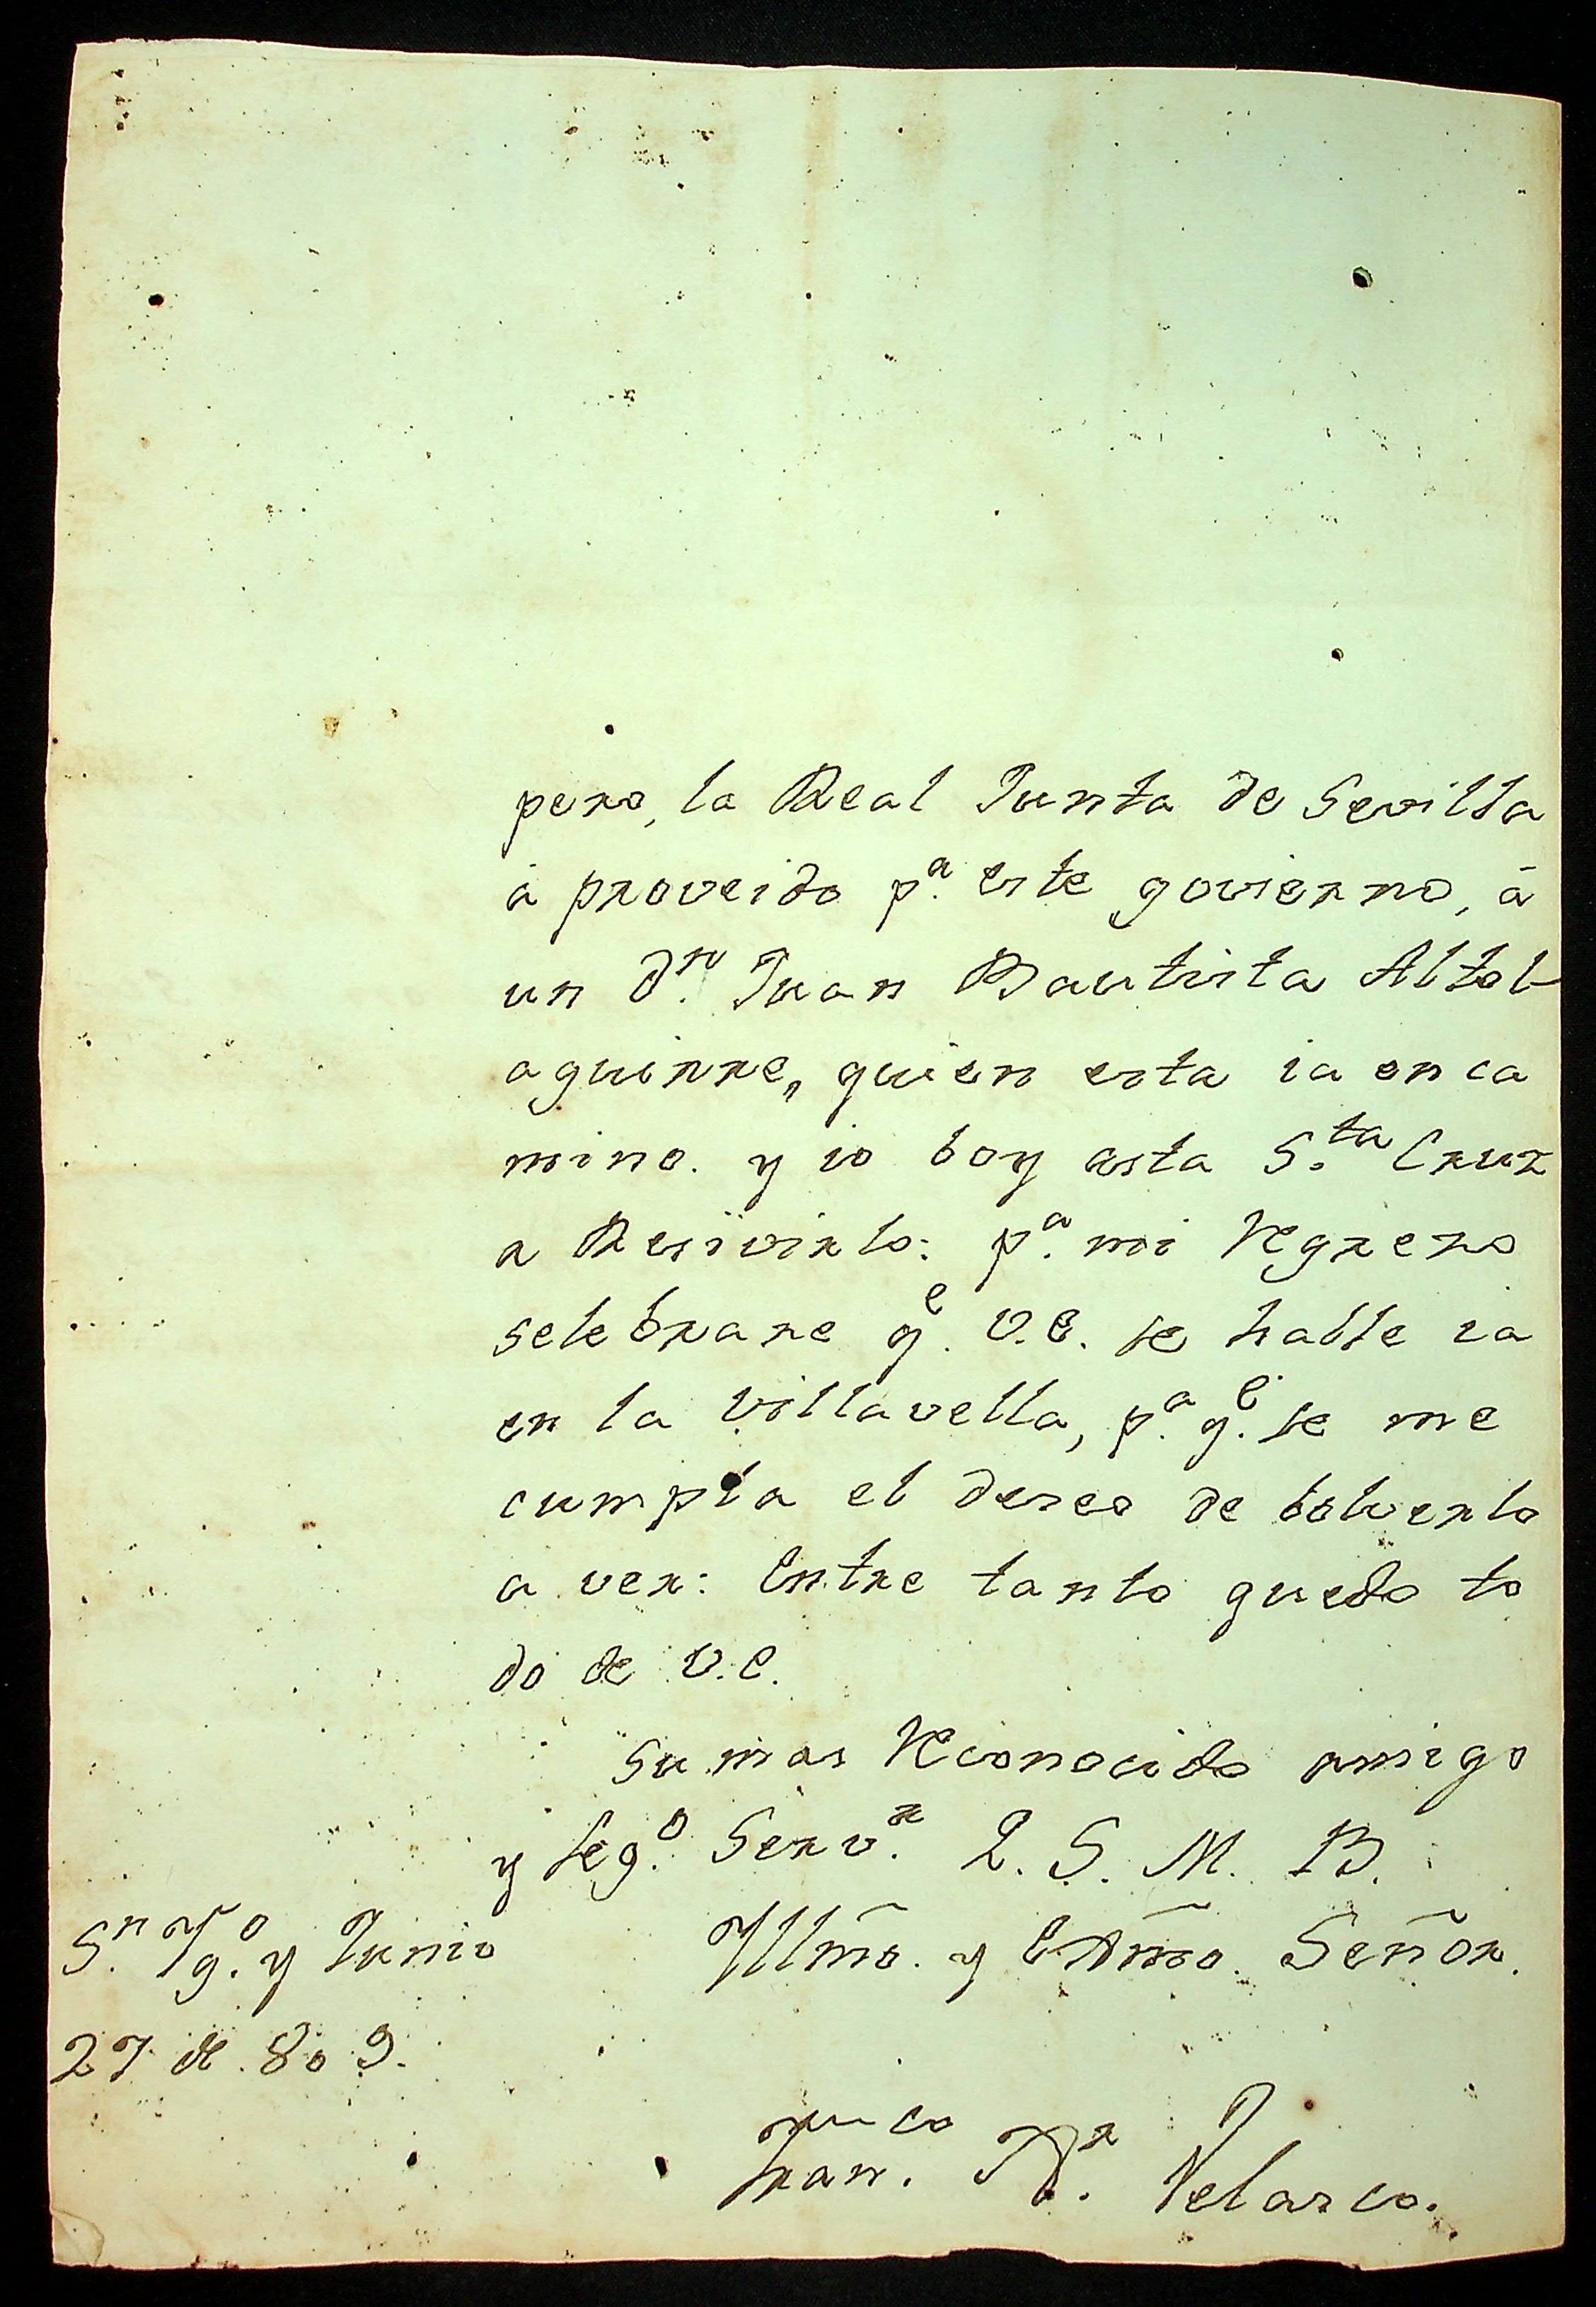 pero, la Real Junta de Sevilla
á proveido p.ª este govierno, á
un d.n Juan Bautista Altol
aguirre, quien esta ia en ca
mino. y io boy asta S.ta Cruz
a Resivirlo: p.ª mi Regreso
selebrare q.e V.E. se halle ia
en la Villavella, p.ª q.e se me
cumpla el deseo de bolverlo
a ver: Entre tanto quedo to
do de V.E.
Su mas Reconocido amigo
y seg.o Serv.r Q. S. M. B.
Yllmõ. y Exmõ. Señor.
S.n Yg.o y Junio
27 de 809.
Fran.co Velasco.